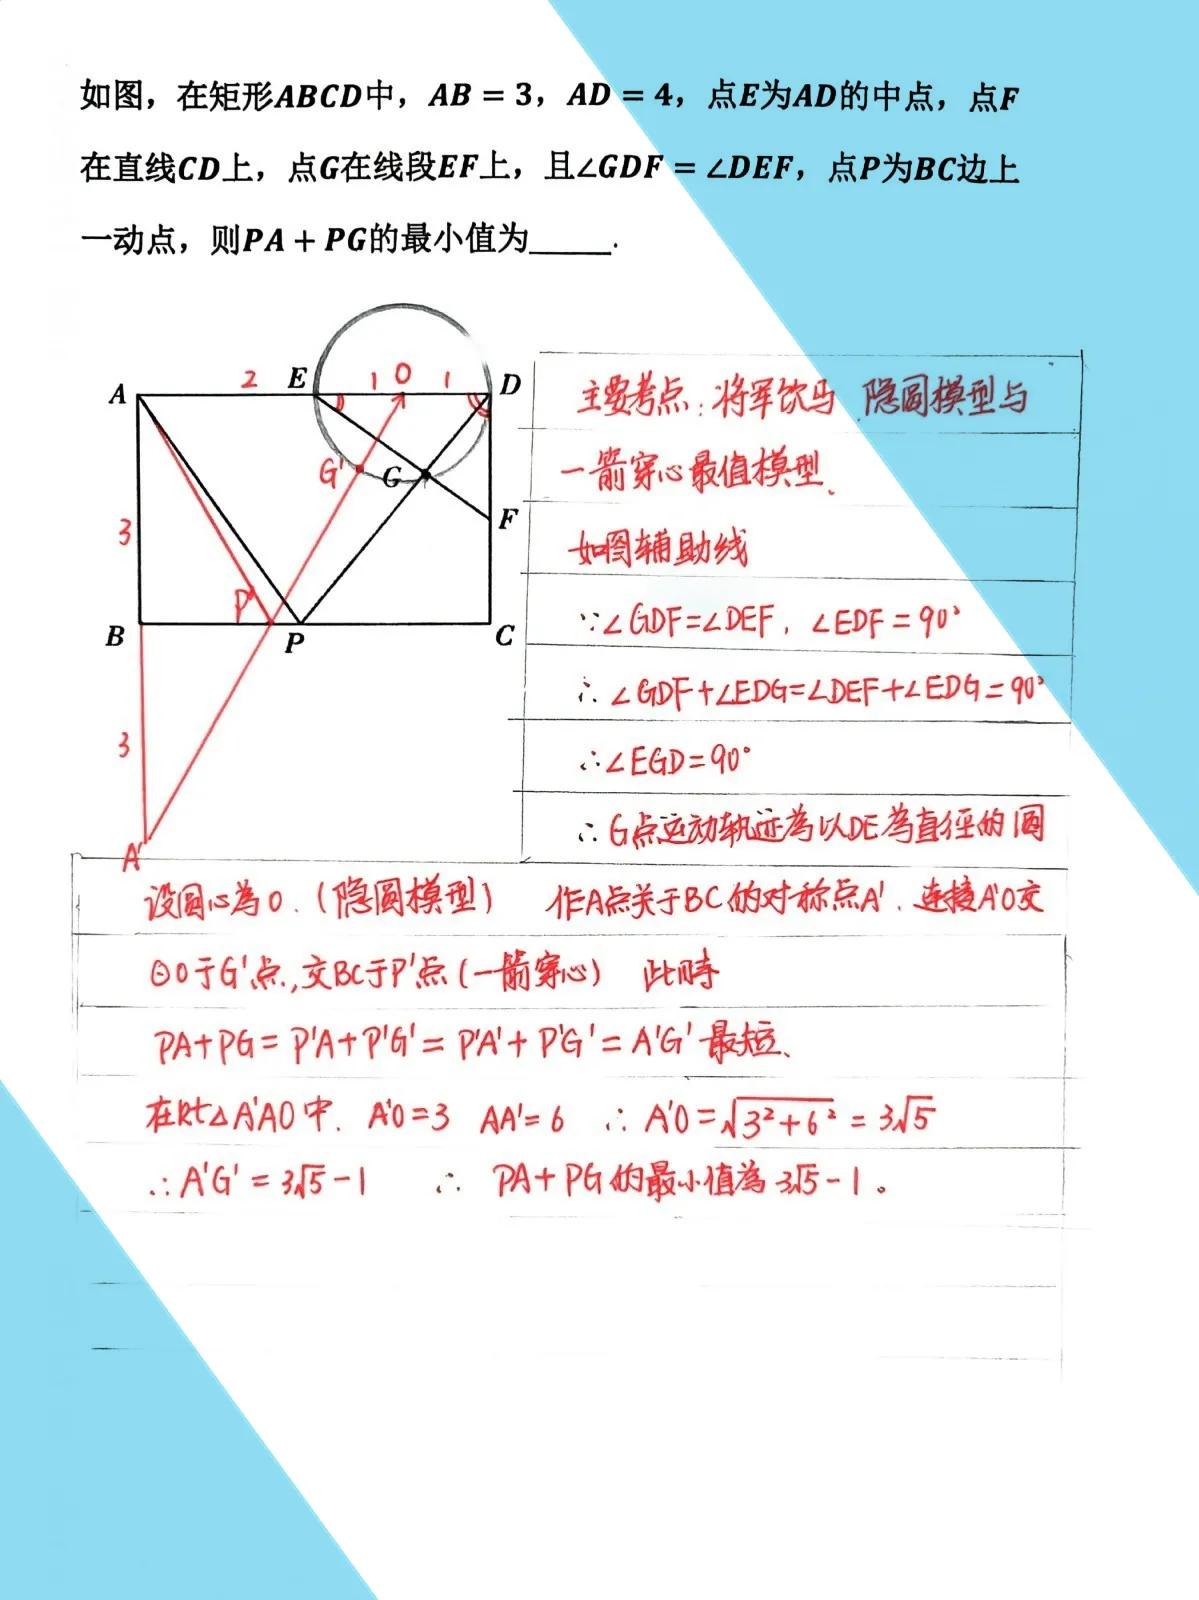 如图，在矩形ABCD中，AB = 3，AD = 4，点E为AD的中点，点F
在直线CD上，点G在线段EF上，且∠GDF = ∠DEF，点P为BC边上
一动点，则PA + PG的最小值为_____.
A 2 E 1 O 1 D
G' G
3 F
P'
B P C
3
A'
主要考点：将军饮马、隐圆模型与
一箭穿心最值模型、
如图辅助线
∵∠GDF=∠DEF，∠EDF=90°
∴∠GDF+∠EDG=∠DEF+∠EDG=90°
∴∠EGD=90°
∴G点运动轨迹為以DE為直径的圆
设圆心為O.（隐圆模型） 作A点关于BC的对称点A'．连接A'O交
⊙O于G'点,交BC于P'点(一箭穿心) 此时
PA+PG=P'A+P'G'=P'A'+P'G'=A'G'最短、
在Rt△A'AO中．A'O=3 AA'=6 ∴A'O=√3²+6²=3√5
∴A'G'=3√5-1 ∴PA+PG的最小值為3√5-1。